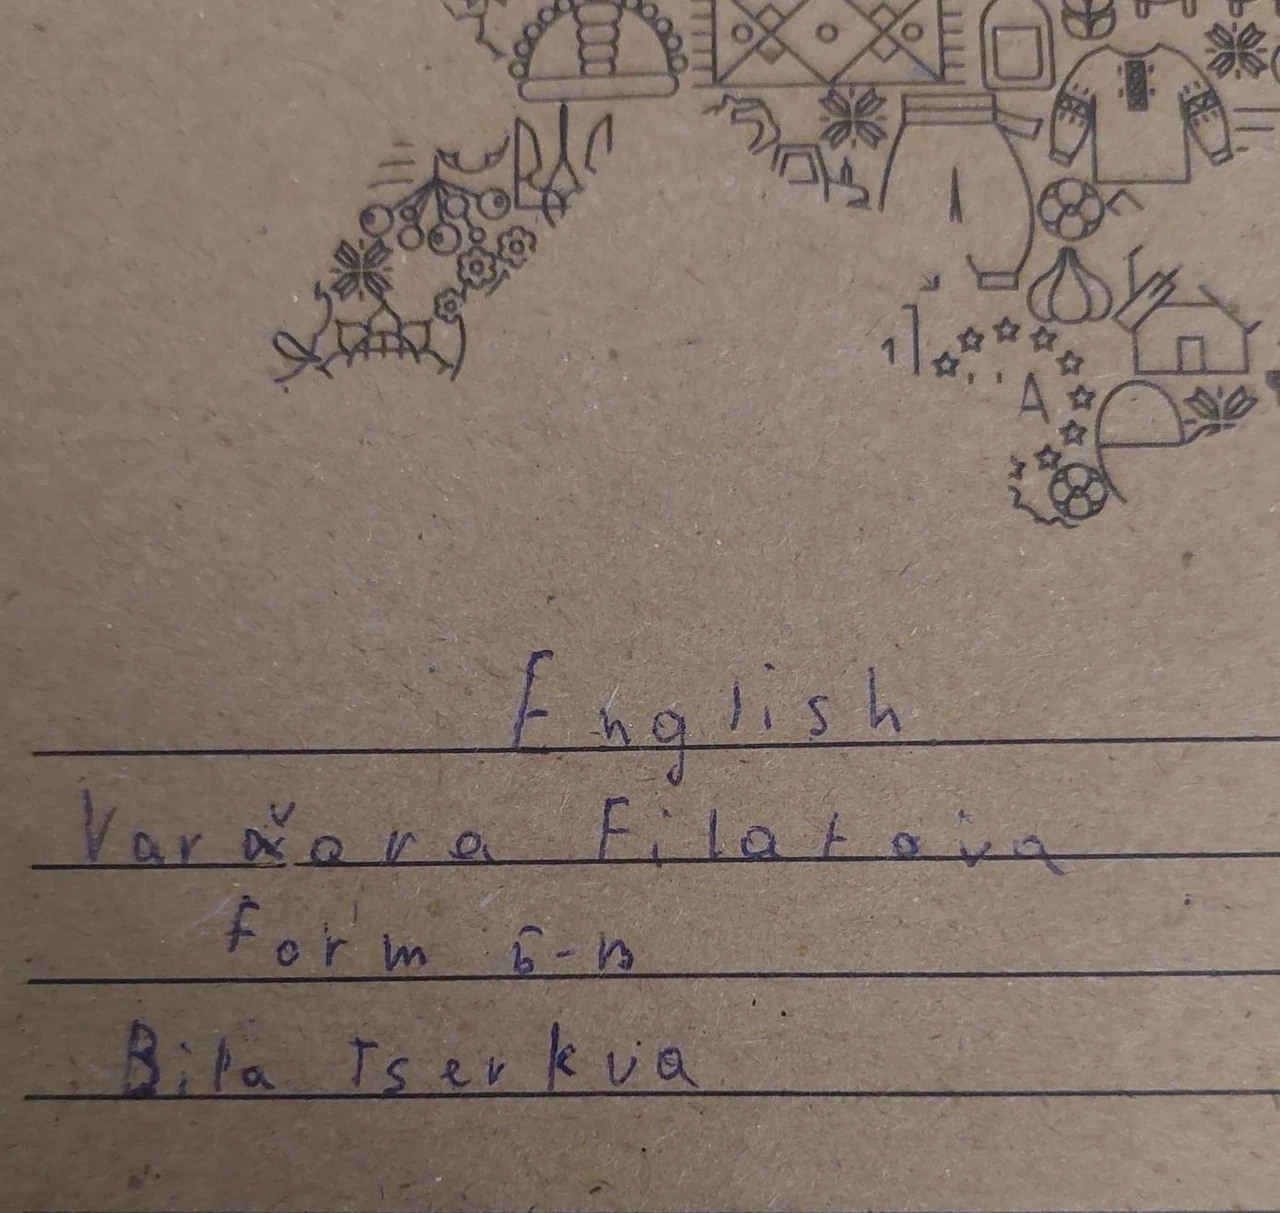 English
Varvara Filatova
Form 5-B
Bila Tserkva